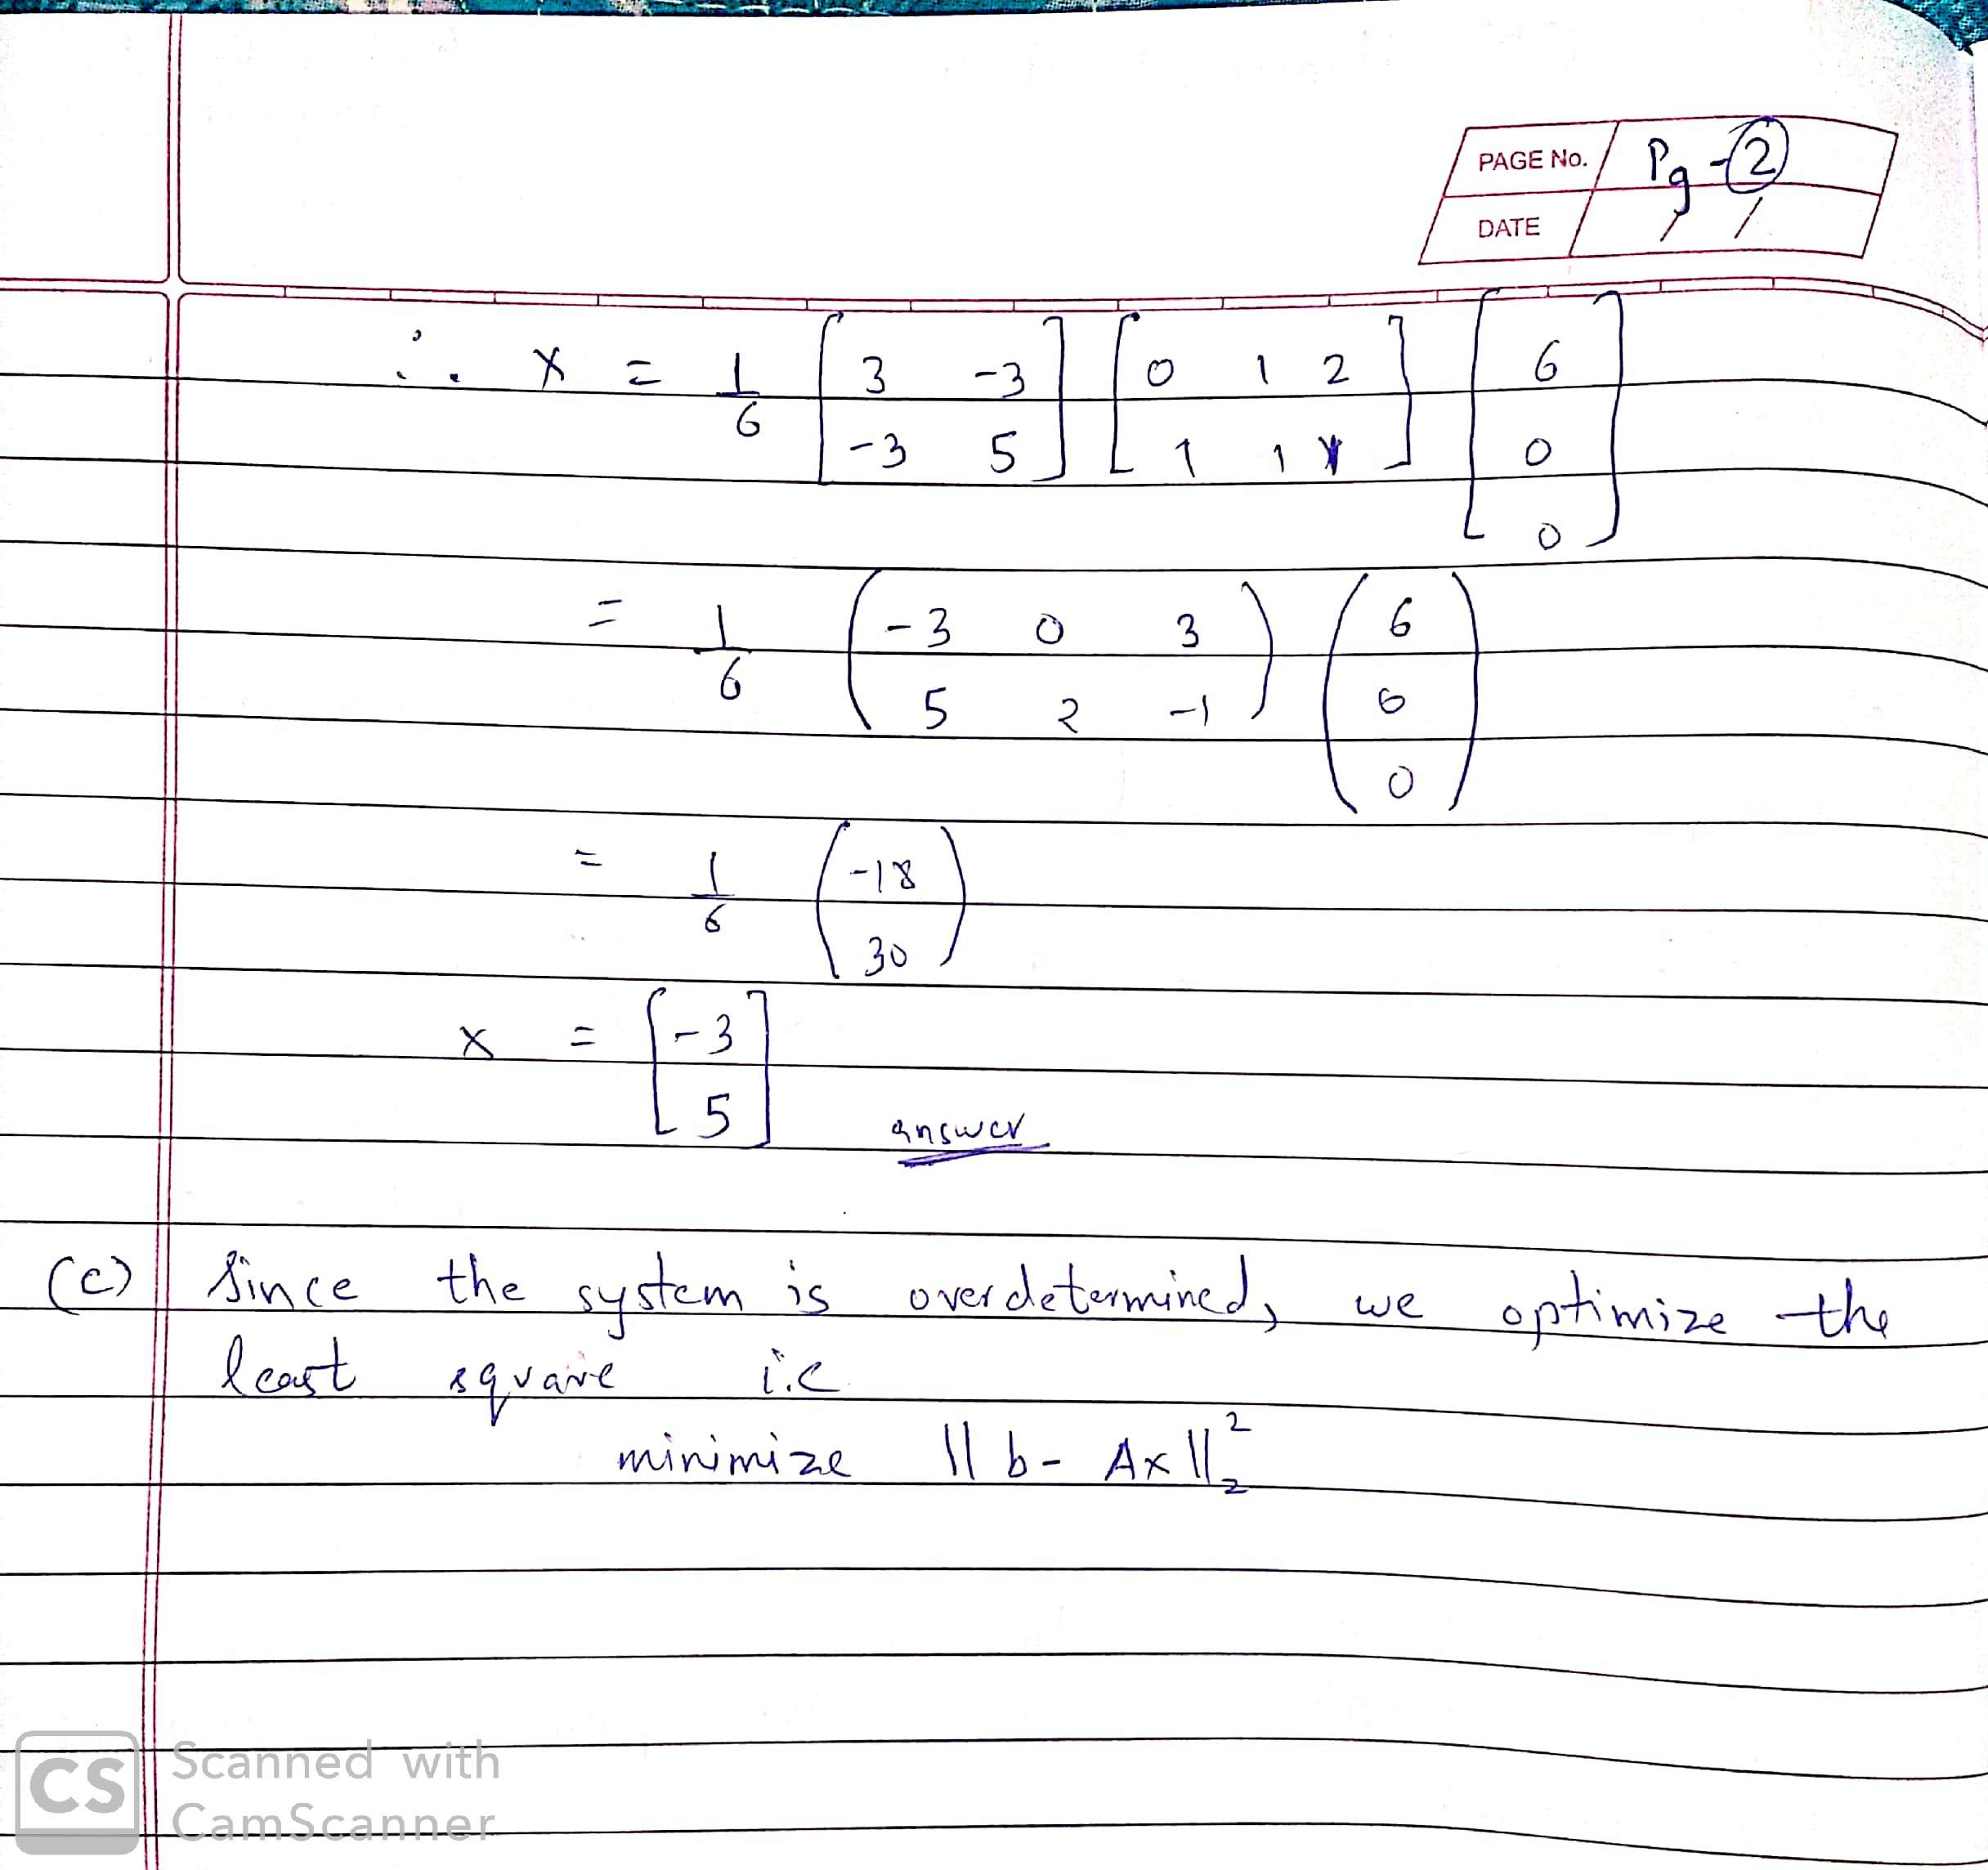 PAGE No. Pg - 2
DATE / /
∴ x = 1/6 [3 -3; -3 5] [0 1 2; 1 1 1] [6; 0; 0]
= 1/6 (-3 0 3; 5 2 -1) (6; 0; 0)
= 1/6 (-18; 30)
x = [-3; 5] answer
(c) Since the system is overdetermined, we optimize the
least square i.e
minimize || b - Ax ||₂²
CS Scanned with
CamScanner